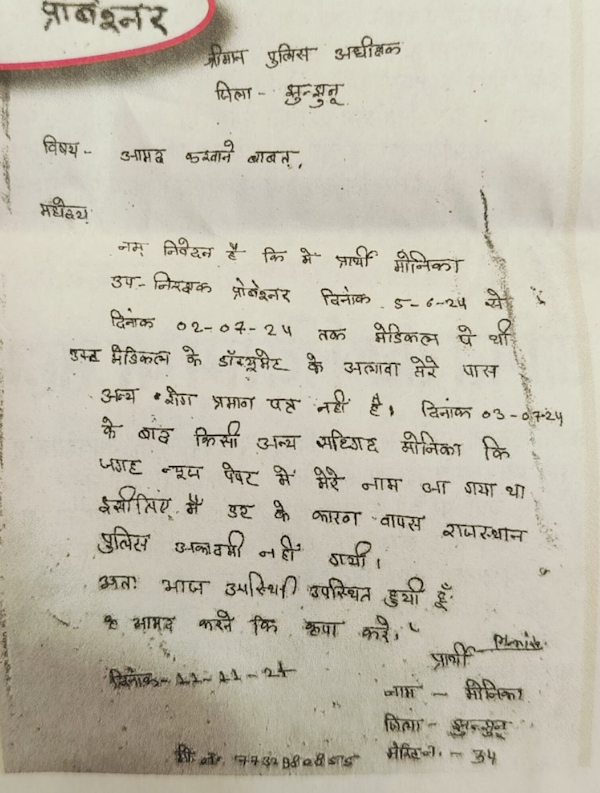 प्रोबेश्नर
श्रीमान पुलिस अधीक्षक
जिला - झुन्झुनू
विषय - आमद करवाने बाबत्,
महोदय
नम्र निवेदन है कि मे प्रार्थी मोनिका
उप-निरक्षक प्रोबेश्नर दिनांक 5-6-24 से
दिनांक 02-07-24 तक मेडिकल पे थी
मेडिकल के डॉक्यूमेंट के अलावा मेरे पास
अन्य रोग प्रमाण पत्र नहीं है। दिनांक 03-07-24
के बाद किसी अन्य मोनिका कि
जगह न्यूज पेपर में मेरे नाम आ गया था
इसीलिए मैं डर के कारण वापस राजस्थान
पुलिस अकादमी नहीं गयी।
अतः आज उपस्थिती उपस्थित हुयी हूँ
आमद करने कि कृपा करे।
प्रार्थी
दिनांक - 11-11-24
नाम - मोनिका
जिला - झुन्झुनू
मेरिट नं. - 34
मो. नं.